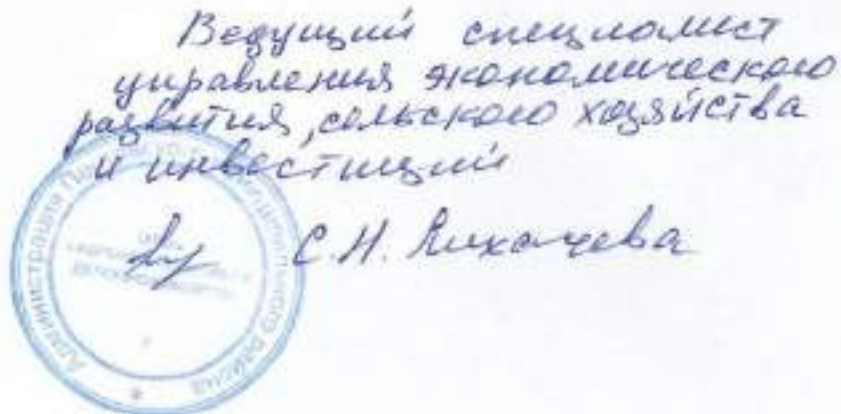 Ведущий специалист
управления экономического
развития, сельского хозяйства
и инвестиций
С.Н. Лихачева
Администрация
муниципального района